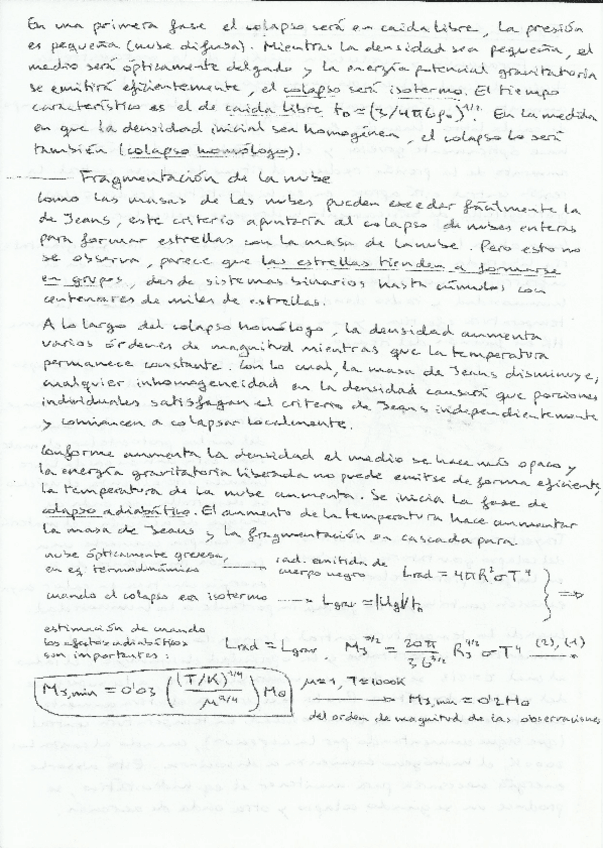 En una primera fase el colapso será en caida libre, la presión
es pequeña (nube difusa). Mientras la densidad sea pequeña, el
medio será ópticamente delgado y la energía potencial gravitatoria
se emitirá eficientemente, el colapso será isotermo. El tiempo
característico es el de caida libre t₀ ≈ (3/4πGρ₀)^1/2. En la medida
en que la densidad inicial sea homogénea, el colapso lo será
también (colapso homólogo).
Fragmentación de la nube
Como las masas de las nubes pueden exceder fácilmente la
de Jeans, este criterio apuntaría al colapso de nubes enteras
para formar estrellas con la masa de la nube. Pero esto no
se observa, parece que las estrellas tienden a formarse
en grupos, desde sistemas binarios hasta cúmulos con
centenares de miles de estrellas.
A lo largo del colapso homólogo, la densidad aumenta
varios órdenes de magnitud mientras que la temperatura
permanece constante. Con lo cual, la masa de Jeans disminuye,
cualquier inhomogeneidad en la densidad causará que porciones
individuales satisfagan el criterio de Jeans independientemente
y comiencen a colapsar localmente.
Conforme aumenta la densidad el medio se hace más opaco y
la energía gravitatoria liberada no puede emitirse de forma eficiente,
la temperatura de la nube aumenta. Se inicia la fase de
colapso adiabático. El aumento de la temperatura hace aumentar
la masa de Jeans y la fragmentación en cascada para.
nube ópticamente gruesa, en eq. termodinámico → rad. emitida de cuerpo negro Lrad = 4πR²σT⁴
cuando el colapso era isotermo → Lgrav = |Ug|/t₀ ⇒
estimación de cuando los efectos adiabáticos son importantes: Lrad = Lgrav, M_J^5/2 = 20π/3G^3/2 R_J^9/2 σT⁴ (2), (1) →
M_J,min = 0'03 ((T/K)^1/4 / μ^9/4) M⊙ μ=1, T=1000K → M_J,min = 0'2M⊙
del orden de magnitud de las observaciones